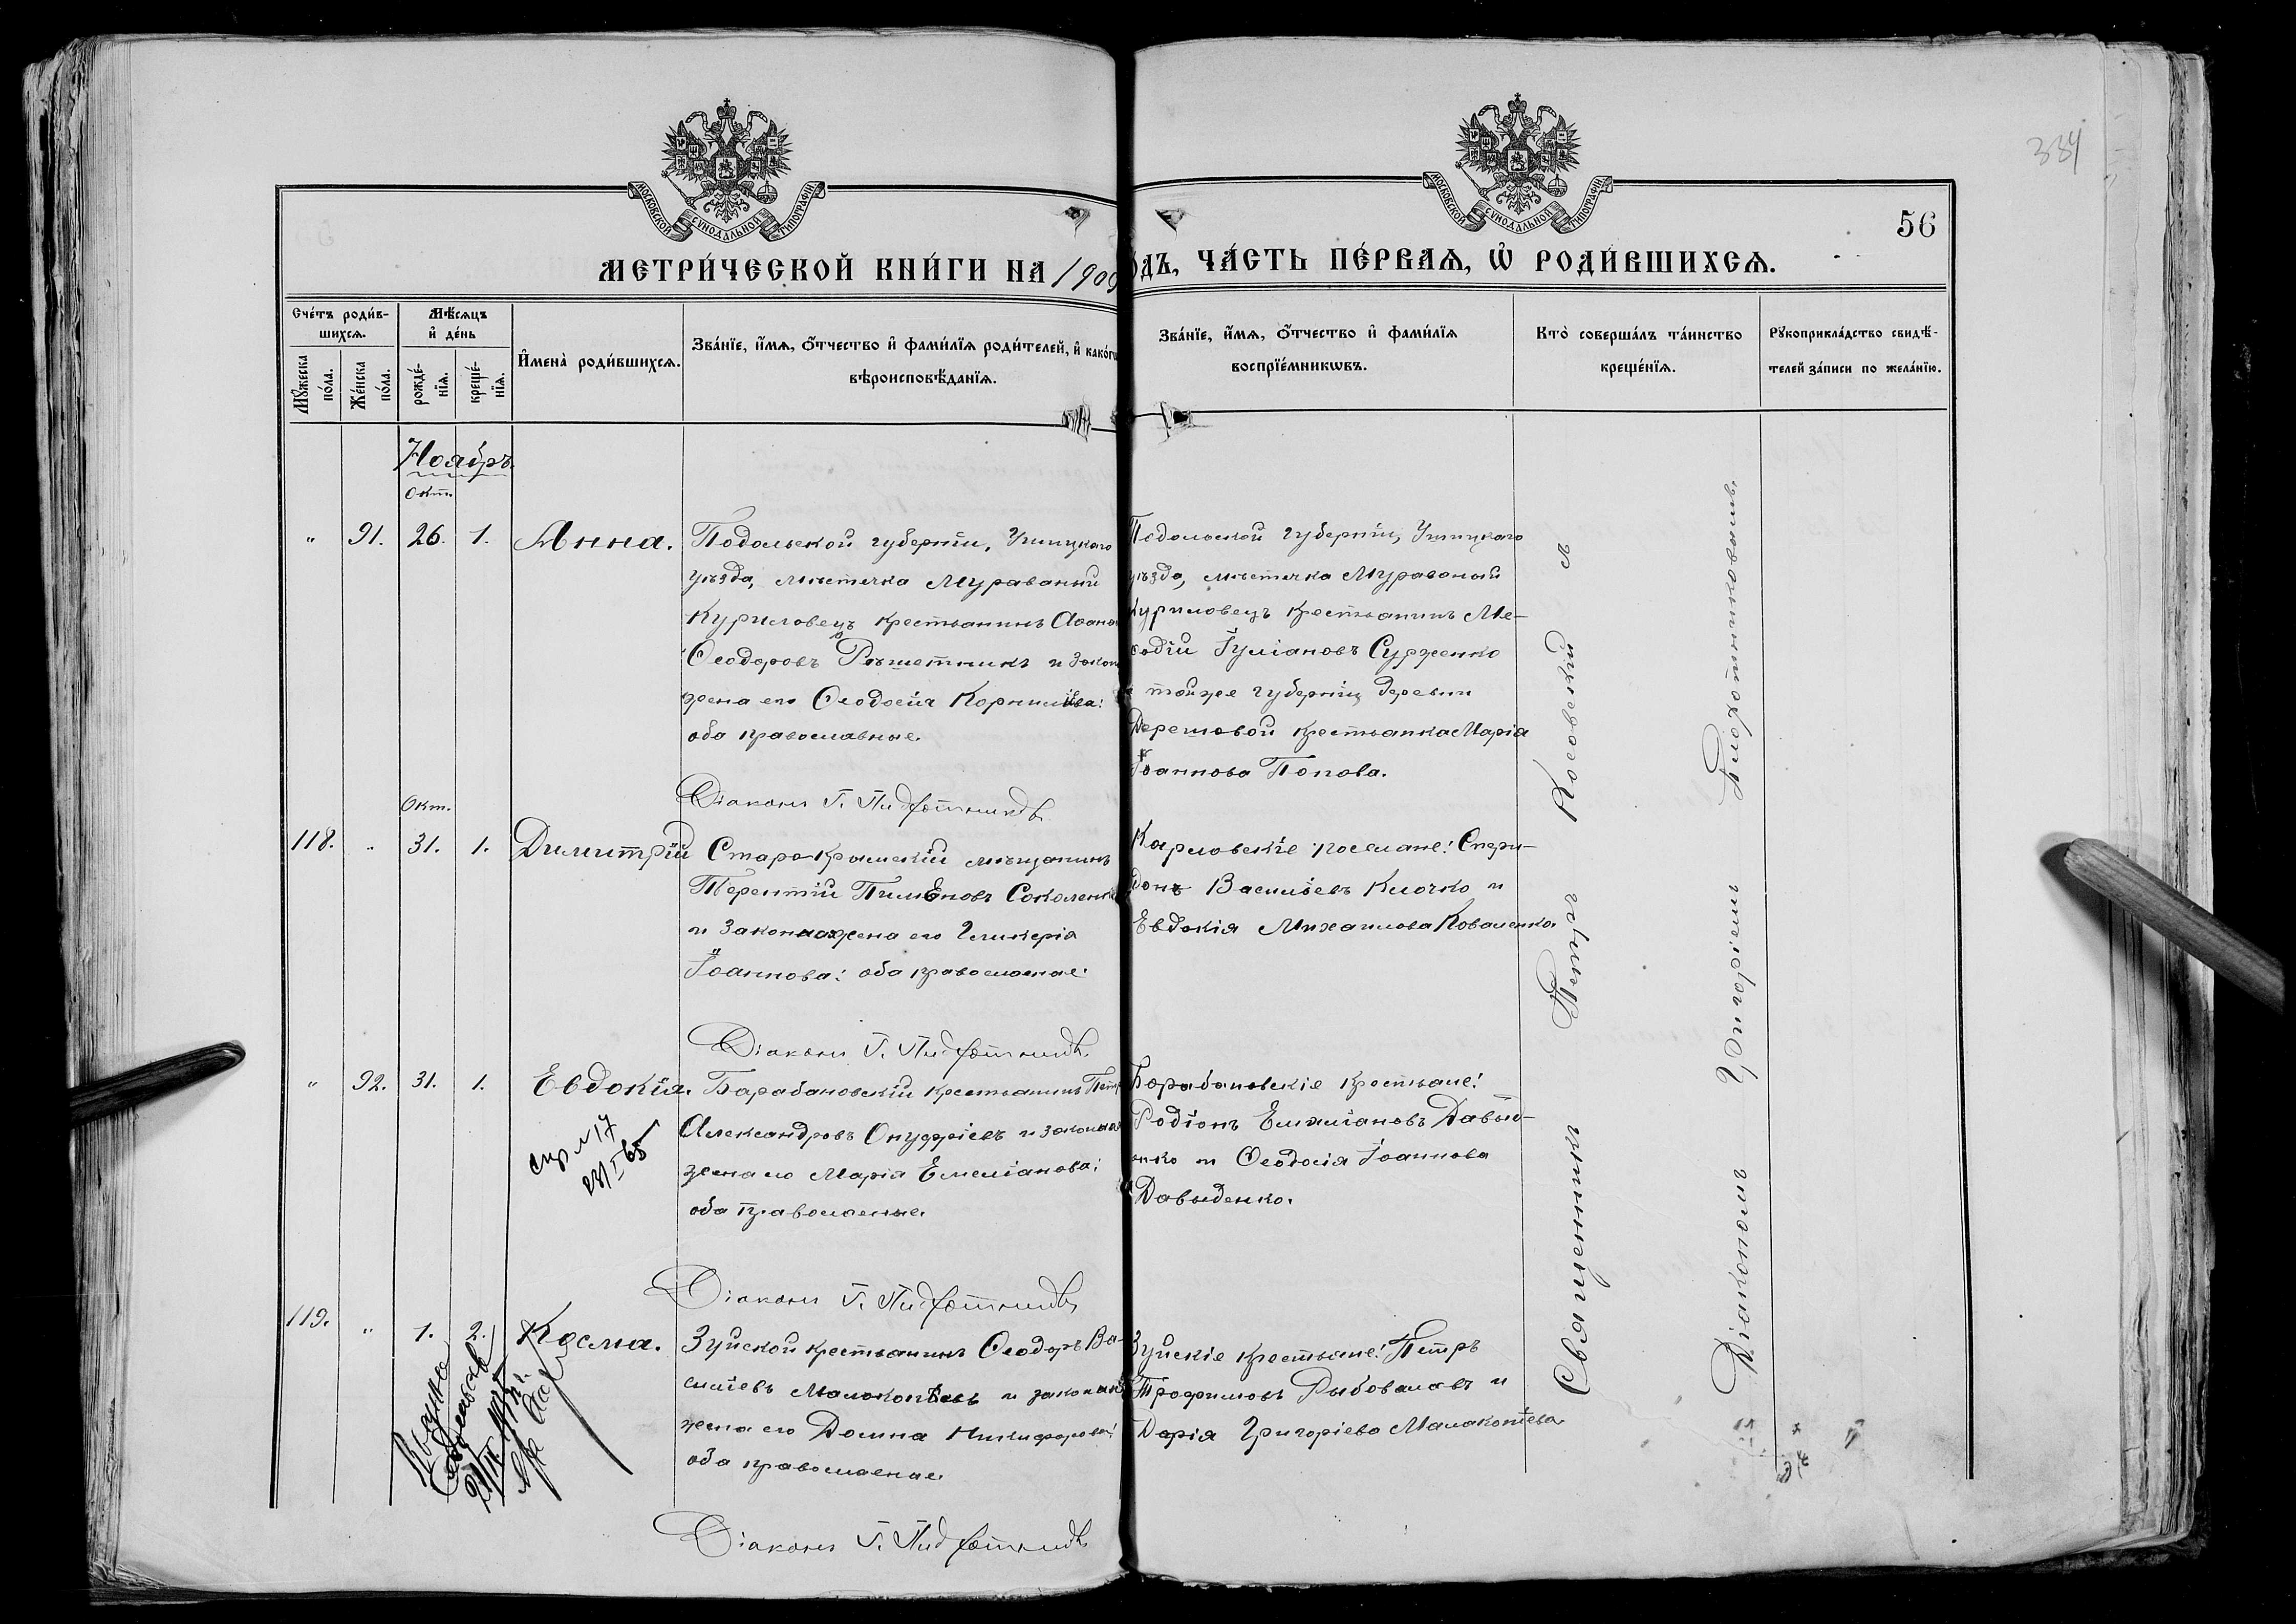 334
МОСКОВСКОЙ СѴНОДАЛЬНОЙ ТИПОГРАФІИ
МОСКОВСКОЙ СѴНОДАЛЬНОЙ ТИПОГРАФІИ
56
МЕТРИ́ЧЕСКОЙ КНИ́ГИ НА 1909
ДЪ, ЧА́СТЬ ПЕ́РВАЯ, Ѡ РОДИ́ВШИХСЯ.
Сче́тъ роди́в-
шихся.
Му́жеска по́ла.
Же́нска по́ла.
Мѣ́сяцъ
и҆ де́нь
рожде́-
нїя.
креще́-
нїя.
И҆мена̀ роди́вшихся.
Зва́нїе, и҆́мя, ѻ҆́тчество и҆ фами́лїя роди́телей, и҆ како́гѡ
вѣроисповѣ́данїя.
Зва́нїе, и҆́мя, ѻ҆́тчество и҆ фами́лїя
воспрїе́мникѡвъ.
Кто̀ соверша́лъ та́инство
креще́нїя.
Рꙋкоприкла́дство свидѣ́-
телей за́писи по жела́нїю.
Ноябрь
Окт.
" 91. 26. 1. Анна.
Подольской губерніи, Ушицкаго
уѣзда, мѣстечка Мураваныи
Куриловецъ крестьянинъ
Ѳеодоровъ Рѣшетникъ и закон
жена его Ѳеодосія Корнилова:
оба православные.
Діаконъ Г.
Подольской губерніи, Ушицкаго
уѣзда, мѣстечка Мураваныи
Куриловецъ крестьянинъ Ме-
ѳодій Іуліановъ Сурженко
и тойже губерніи, деревни
крестьянка Марія
Іоаннова Попова.
Окт.
118. " 31. 1. Димитрій
Старо-Крымскій мѣщанинъ
Терентій Пименовъ Соколенко
и законная жена его Гликерія
Іоаннова: оба православные.
Діаконъ Г.
Карловскіе поселяне: Спири-
донъ Васильевъ Клочко и
Евдокія Михаилова Коваленко.
" 92. 31. 1. Евдокія.
№ 17
Барабановскій крестьянинъ Петр
Александровъ Онуфріевъ и законная
жена его Марія Емеліанова:
оба православные.
Діаконъ Г.
Барабановскіе крестьяне:
Родіонъ Емиліановъ Давыд-
енко и Ѳеодосія Іоаннова
Давыденко.
119. " 1. 2. Косма.
Зуйской крестьянинъ Ѳеодоръ Ва-
сильевъ Малокопѣевъ и законная
жена его Домна Никифорова:
оба православные.
Діаконъ Г.
Зуйскіе крестьяне: Петръ
Трофимовъ Рыбоваловъ и
Дарія Григоріева Малакопѣева.
Священникъ Петръ Косовскій съ
Діакономъ Григоріемъ